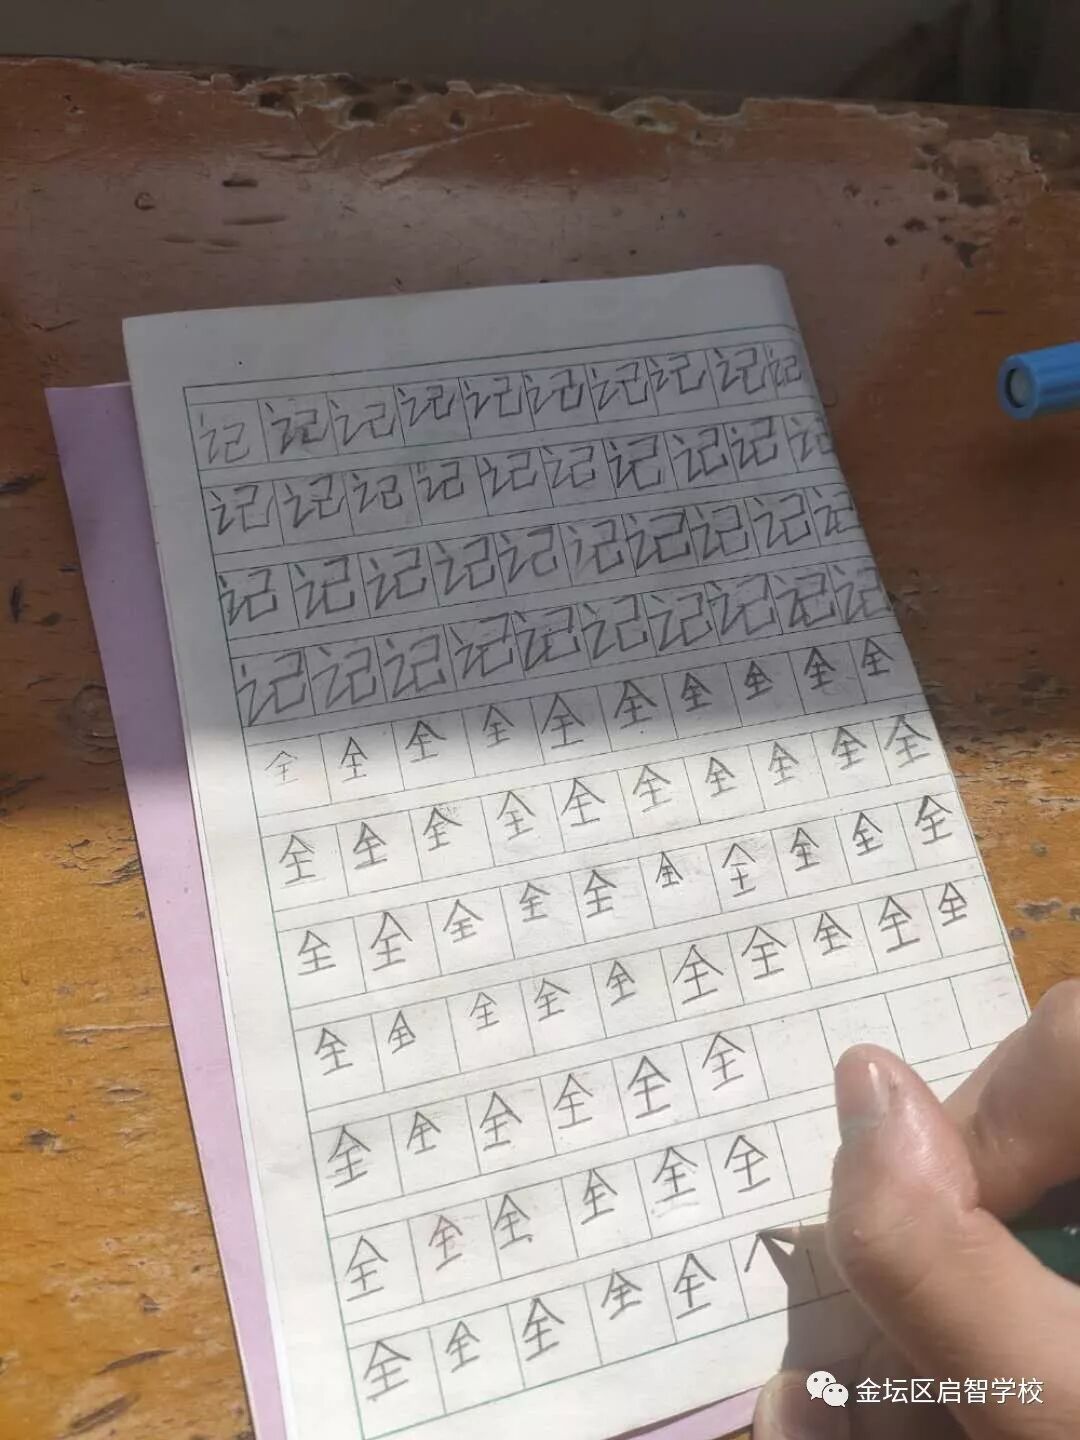 记记记记记记记记记记
记记记记记记记记记记
记记记记记记记记记记
记记记记记记记记记记
全全全全全全全全全全
全全全全全全全全全全
全全全全全全全全全全
全全全全全全全全全全
全全全全全全
全全全全全全
全全全全全
金坛区启智学校